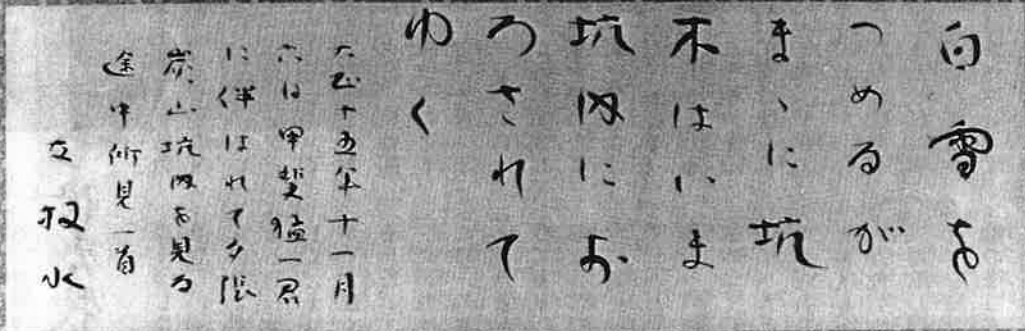 白雪を
つめるが
まゝに坑
木はいま
坑内にお
ろされて
ゆく
大正十五年十一月
六日甲斐猛一君
に伴はれて夕張
炭山坑内を見る
途中所見一首
友牧水